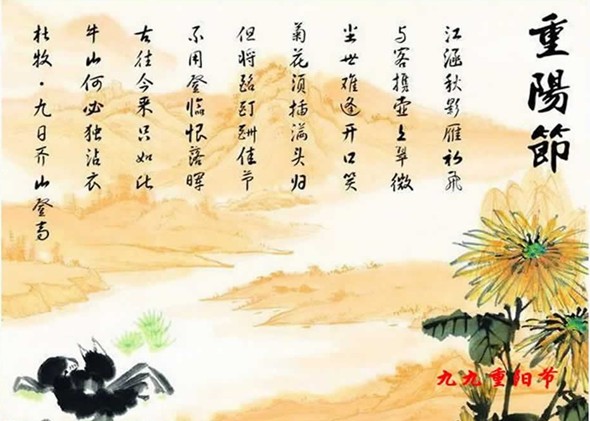 重陽節
江涵秋影雁初飛
与客携壶上翠微
尘世难逢开口笑
菊花须插满头归
但将酩酊酬佳节
不用登临恨落晖
古往今来只如此
牛山何必独沾衣
杜牧·九日齐山登高
九九重阳节